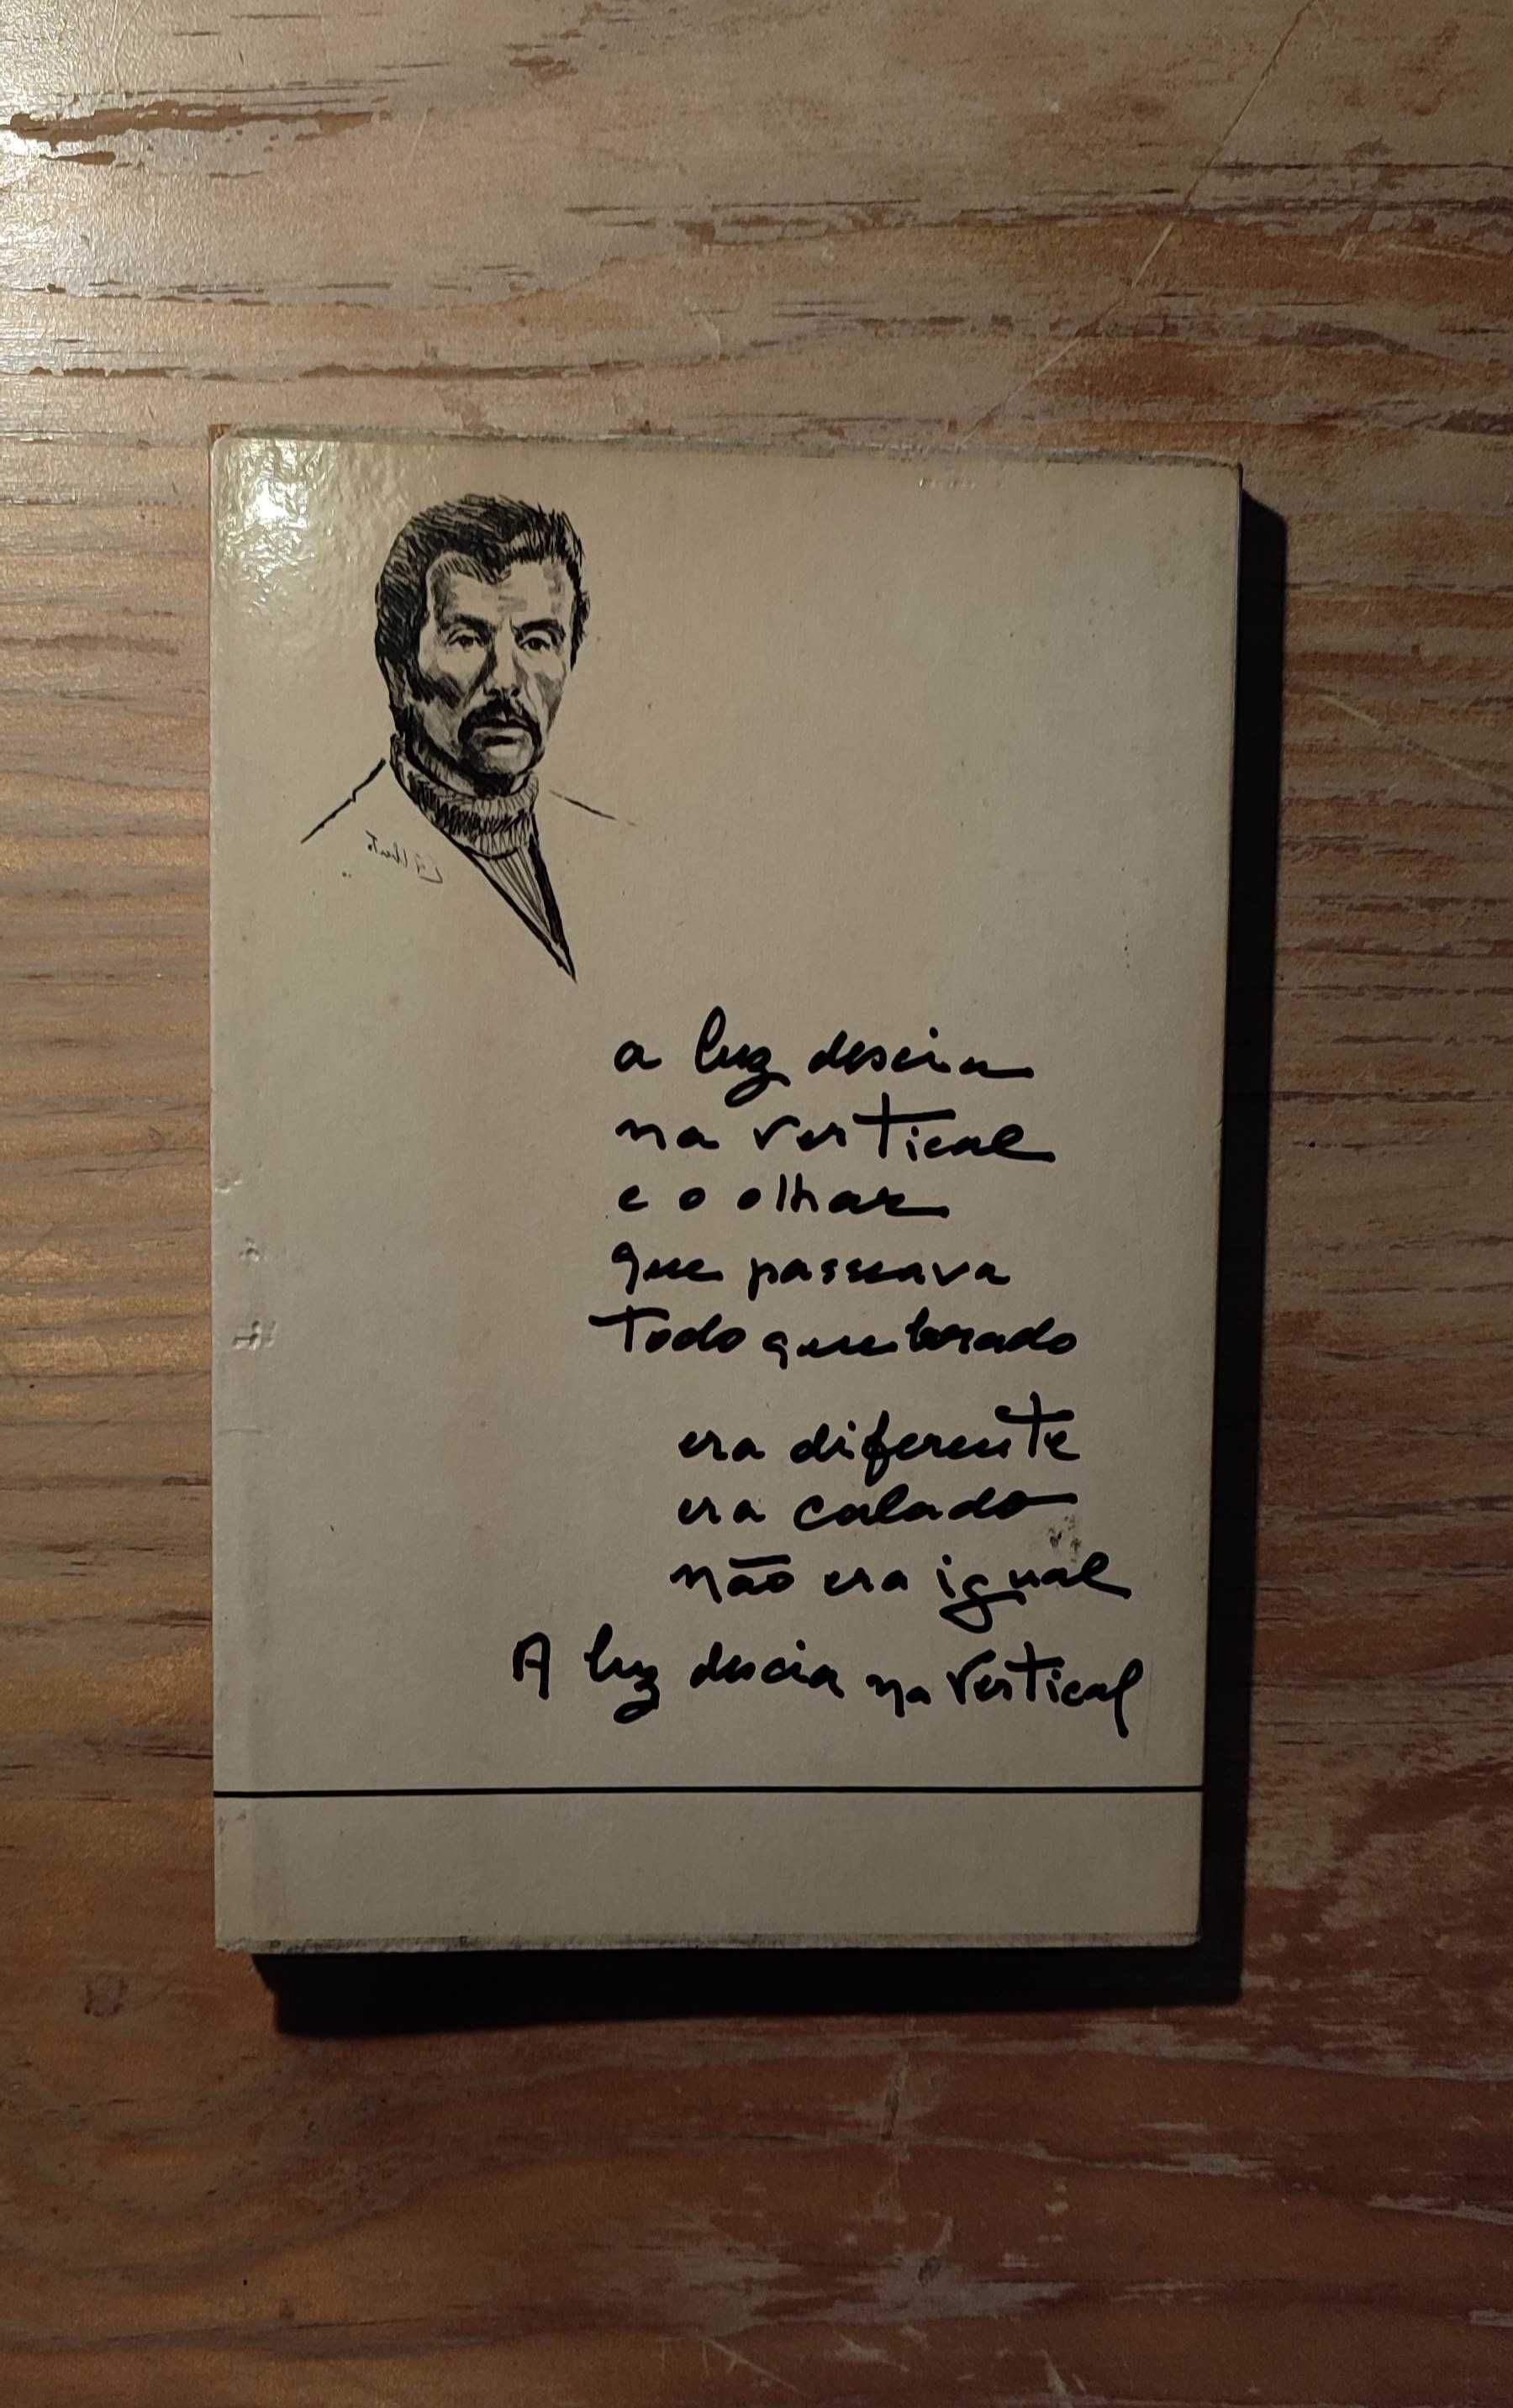 a luz descia
na vertical
e o olhar
que passeava
Todo quebrado
era diferente
era calado
não era igual
A luz descia na vertical